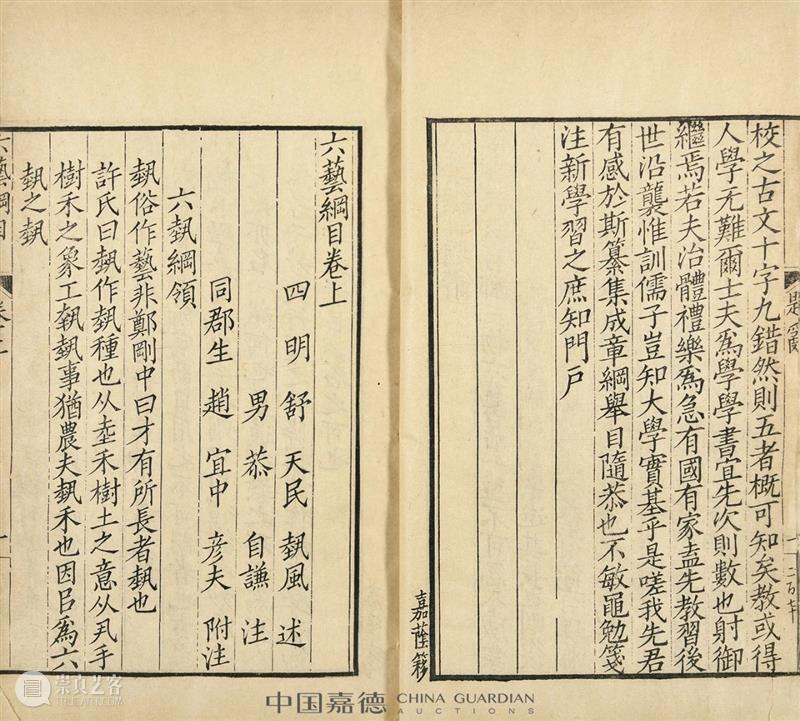 校之古文十字九錯然則五者概可知矣教或得
人學无難爾士夫爲學學書宜先次則數也射御
繼焉若夫治體禮樂爲急有國有家盍先教習後
世沿襲惟訓儒子豈知大學實基乎是嗟我先君
有感於斯纂集成章綱舉目隨恭也不敏黽勉箋
注新學習之庶知門戶
嘉蔭簃
六藝綱目卷上
四明舒天民埶風述
男恭自謙注
同郡生趙宜中彥夫附注
六埶綱領
埶俗作藝非鄭剛中曰才有所長者埶也
許氏曰埶作埶種也从坴禾樹土之意从丮手
樹禾之象工埶埶事猶農夫埶禾也因㠯爲六
埶之埶
六藝綱目
崇真艺客
中国嘉德 CHINA GUARDIAN
AUCTIONS